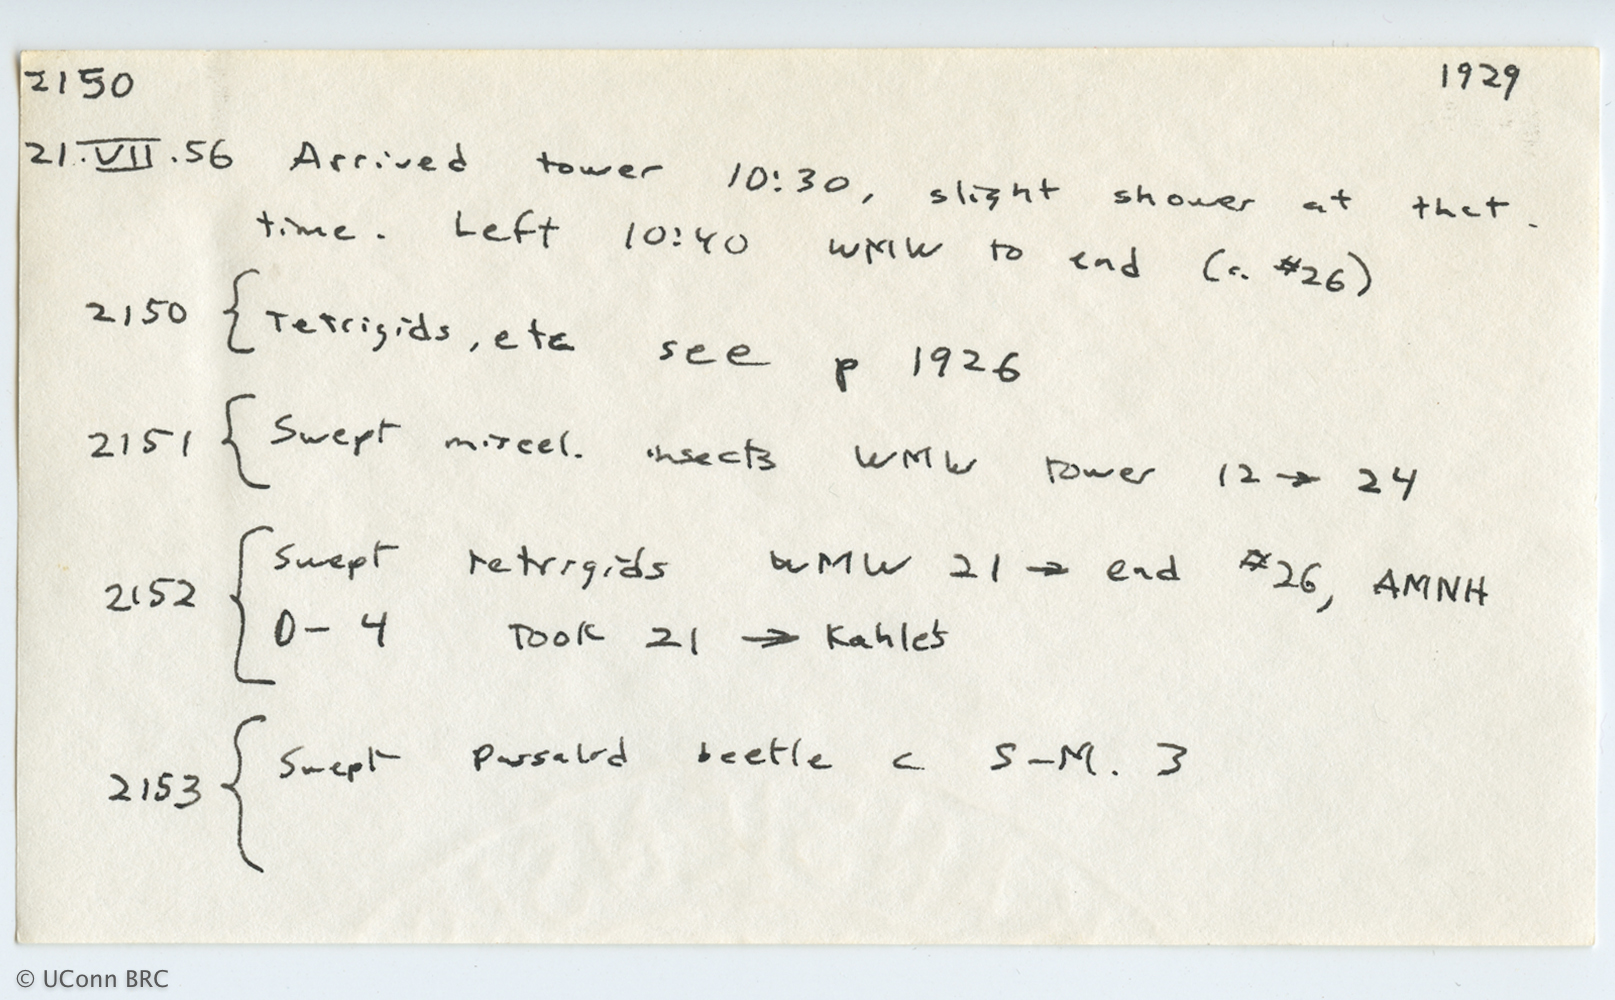 2150 1929
21.VII.56 Arrived tower 10:30, slight shower at that.
time. Left 10:40 WMW to end (c. #26)
2150 { Tetrigids, etc see p 1926
2151 { Swept miscel. insects WMW tower 12 → 24
2152 { Swept tetrigids WMW 21 → end #26, AMNH
0-4 Took 21 → Kahle's
2153 { Swept passalid beetle c S-M. 3
© UConn BRC